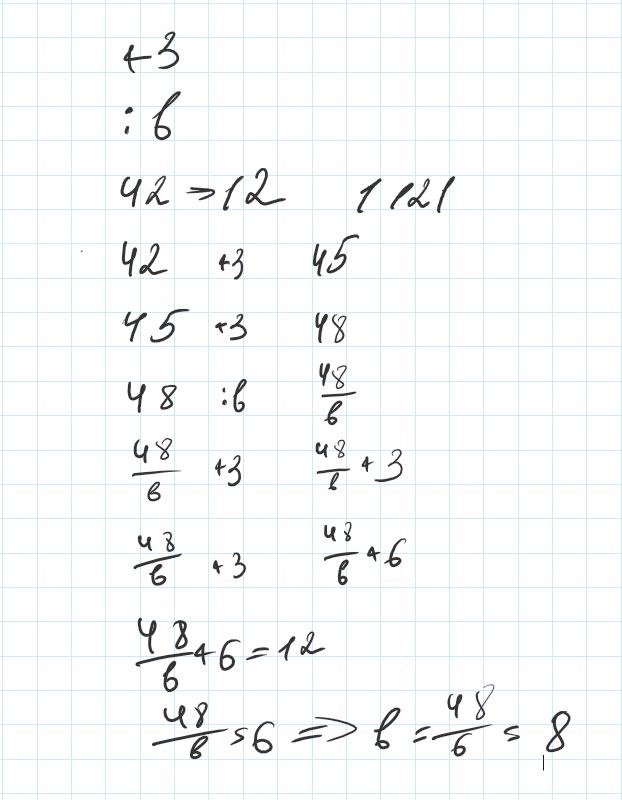 +3
: b
42 => 12 1 121
42 +3 45
45 +3 48
48 :b 48/b
48/b +3 48/b + 3
48/b +3 48/b + 6
48/b + 6 = 12
48/b = 6 => b = 48/6 = 8